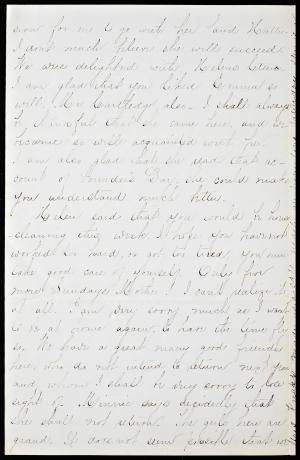 for me to go with her and Hattie.
I dont much believe she will succeed.
We were delighted with Helens letter.
I am glad that you liked Emma so
well, Mrs Cartledge also. I shall always
be thankful that she came here, and we
became so well acquainted with her.
I am also glad that she had that ac-
count of Founder's Day, she could make
you understand much better.
Helen said that you would be house
cleaning this week. I hope you have not
worked too hard, or got too tired, you must
take good care of yourself. Only four
more Sundays Mother! I can't realize it
at all. I am very sorry much as I want
to be at home again, to have the time fly
so. We have a great many good friends
here, who do not intend to return next year
and whom I shall be very sorry to lose
sight of. Minnie says decidedly that
she shall not return. The girls here are
grand. It does not seem possible that we